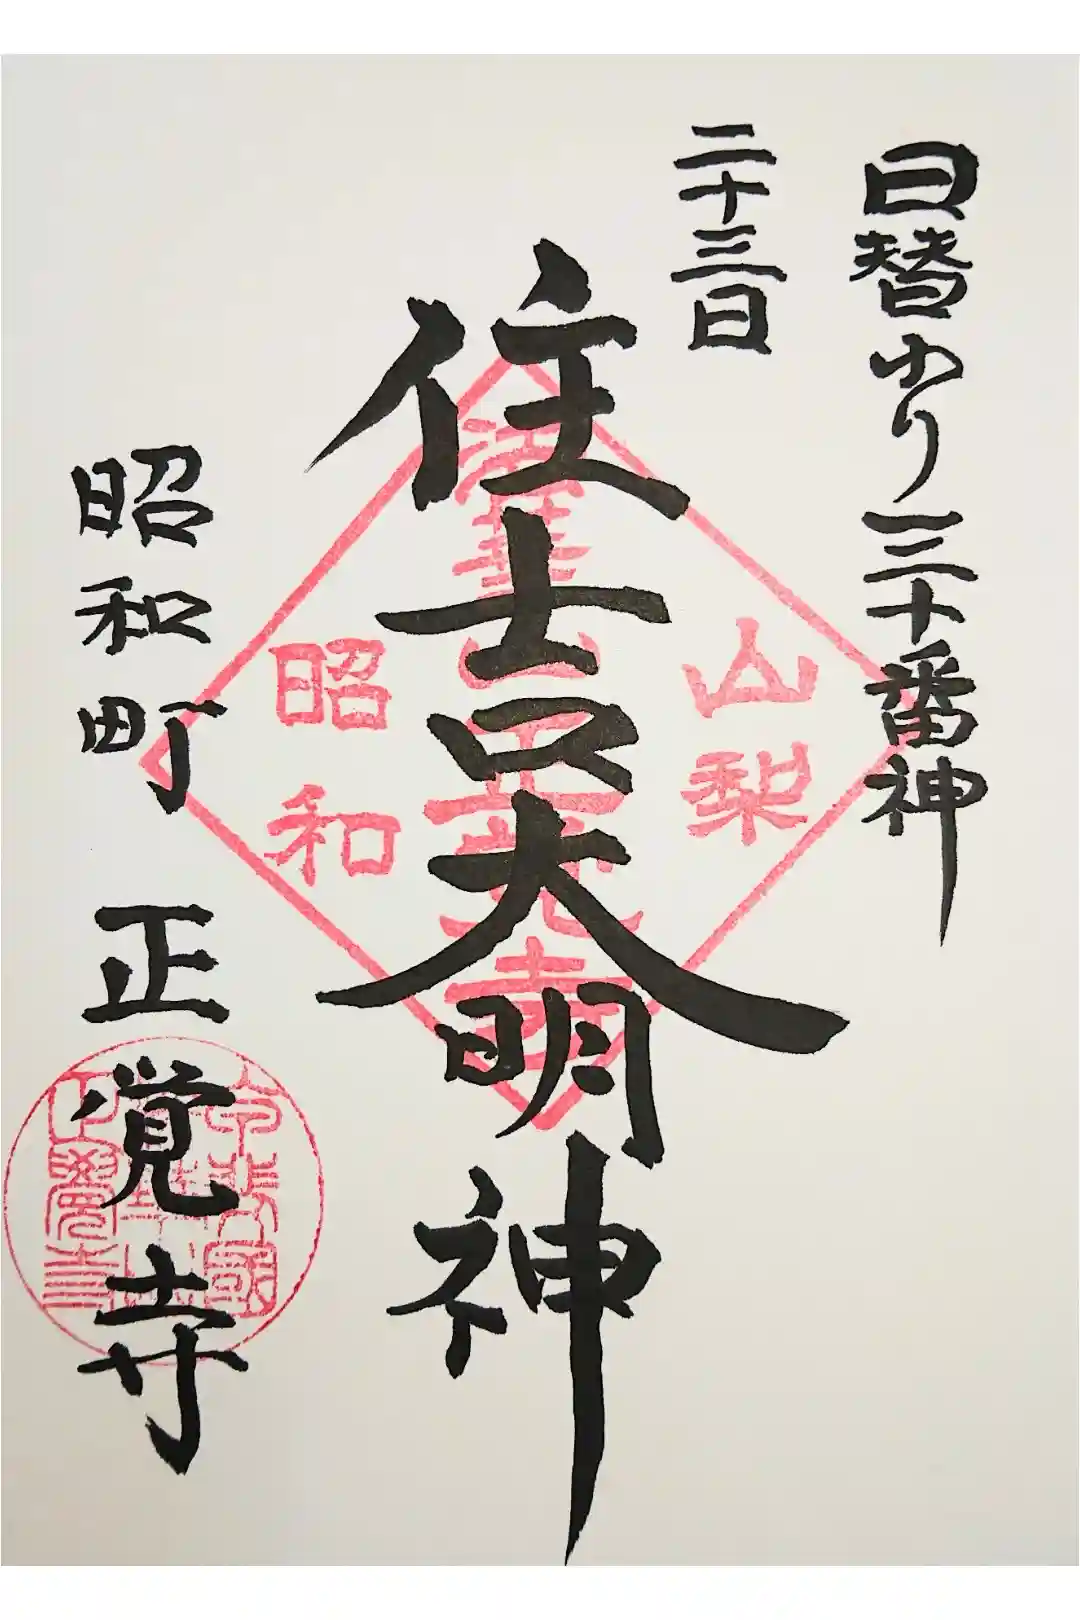 日替わり三十番神
二十三日
山梨
住吉大明神
昭和
昭和町 正覚寺